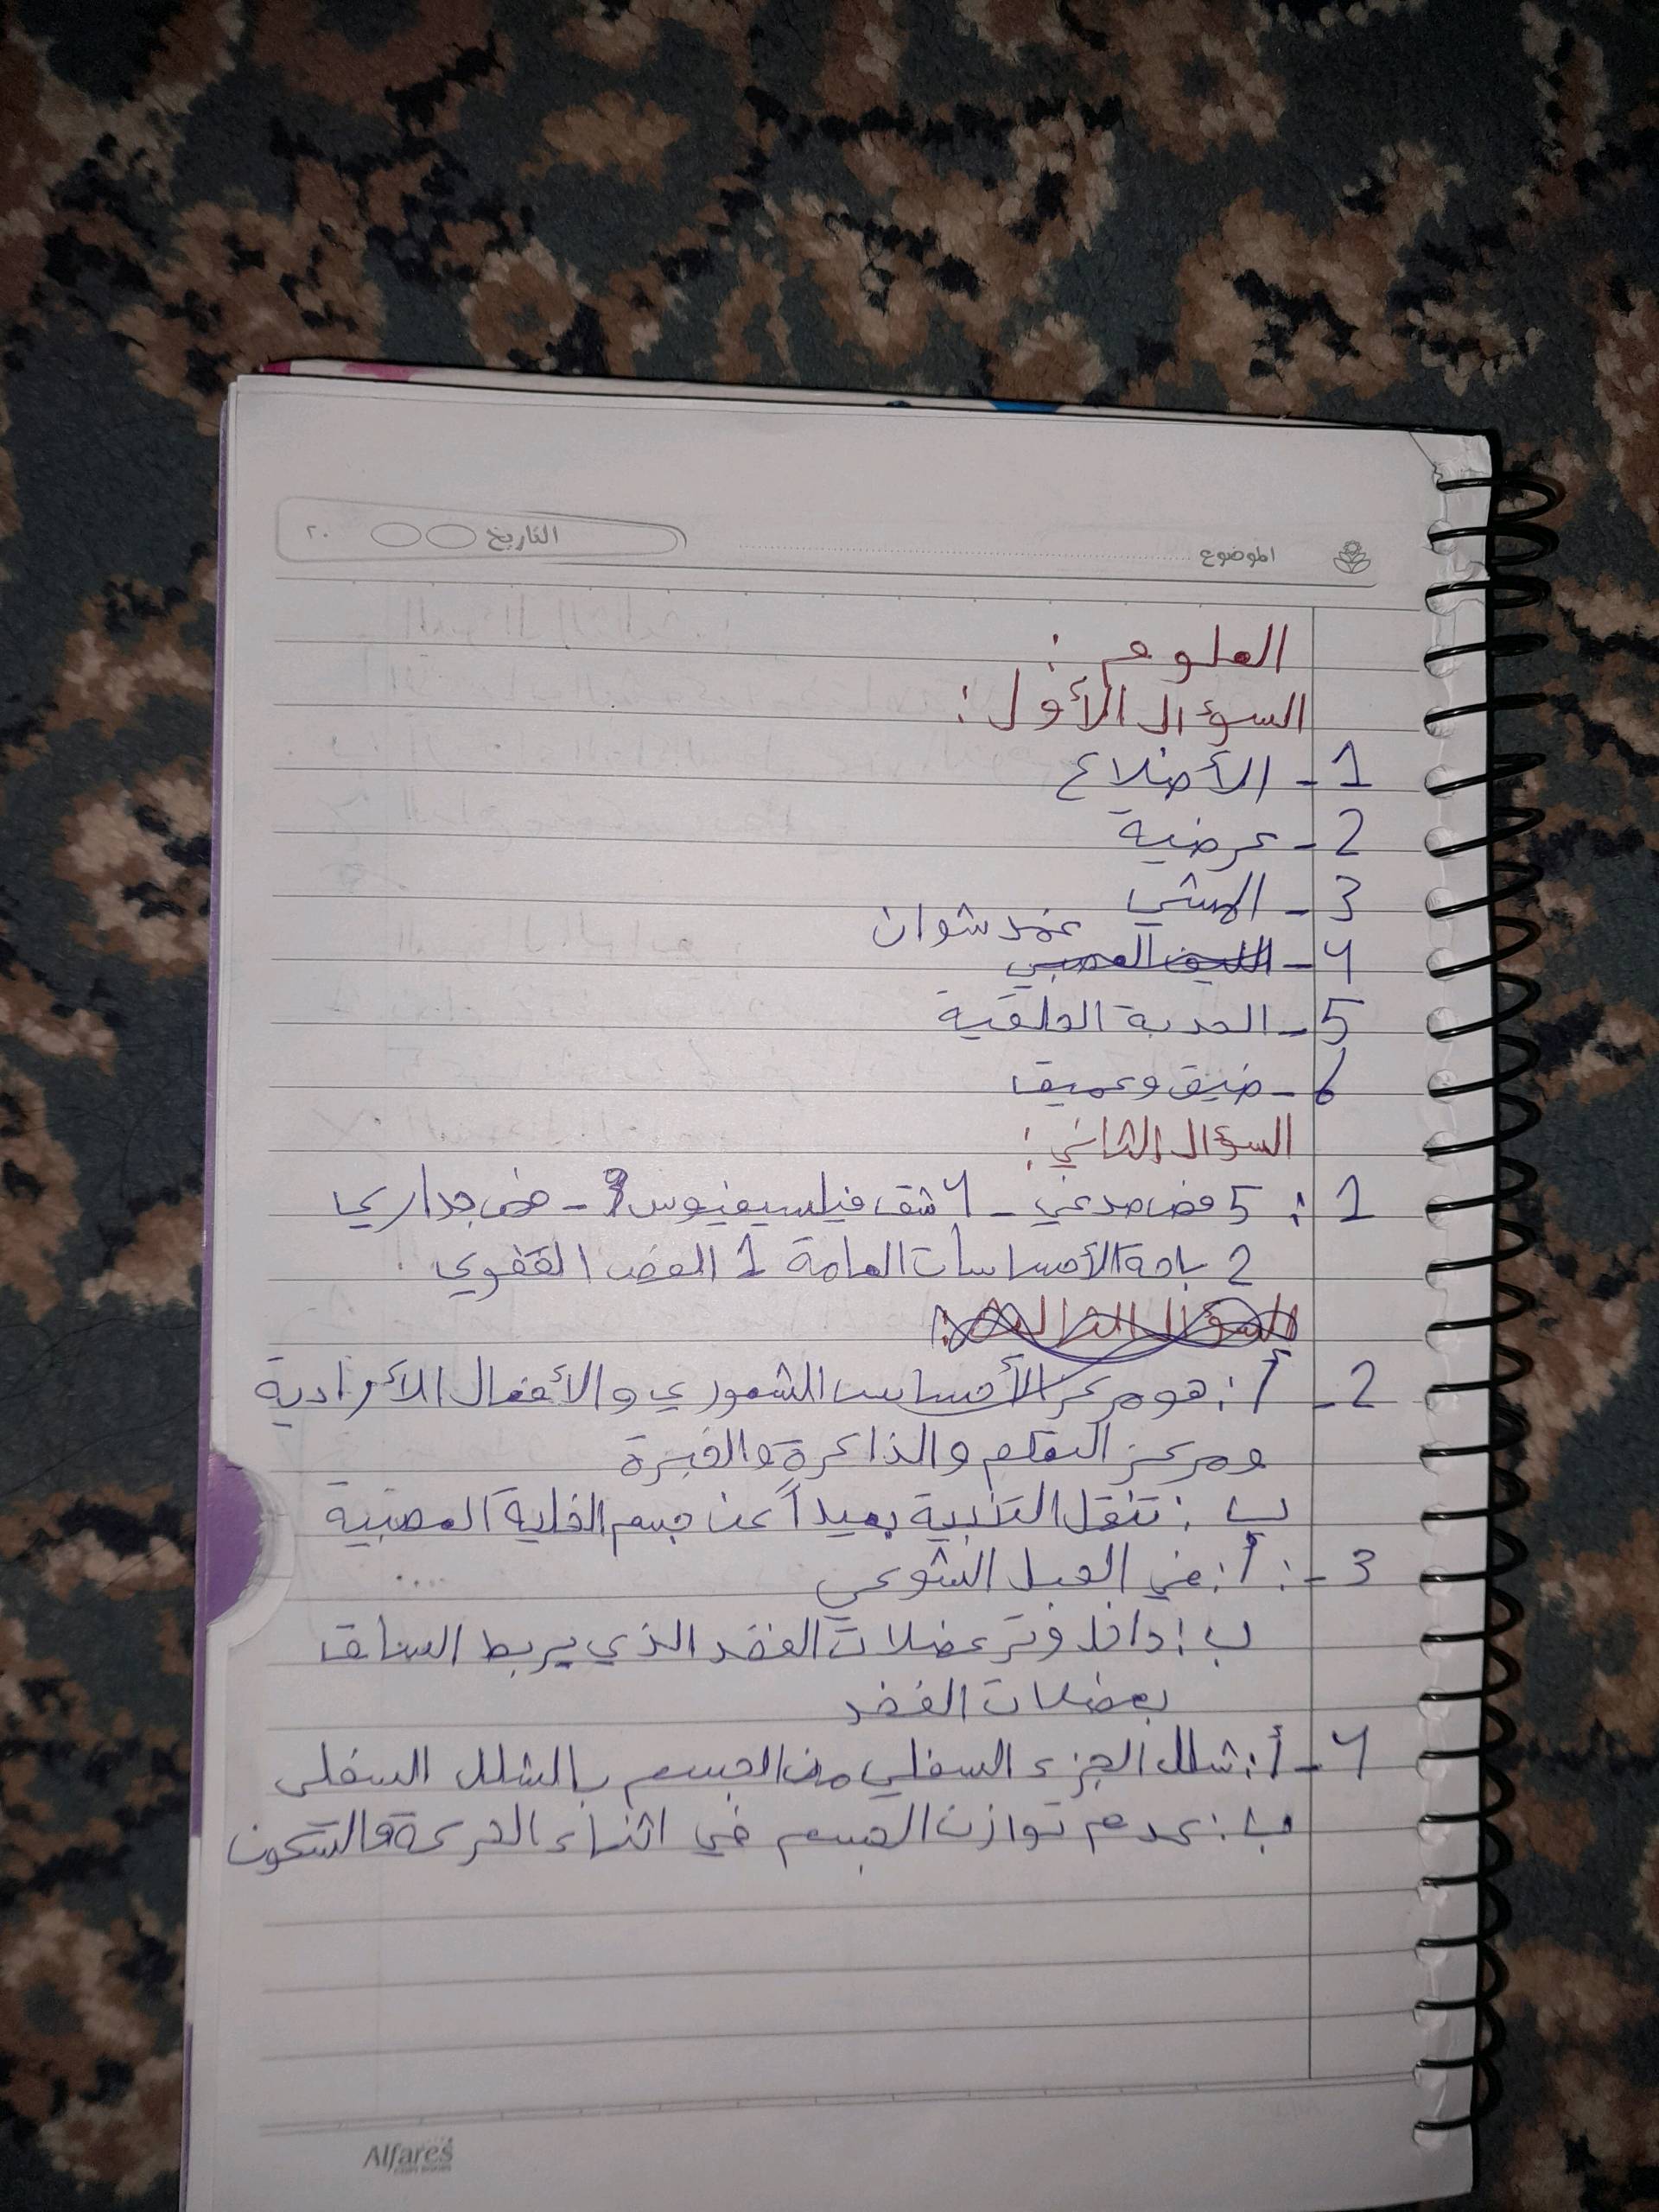 الموضوع
التاريخ
٢٠
العلوم :
السؤال الأول :
1 - الأضلاع
2 - عرضية
3 - المشي
4 - الليف العصبي غمد شوان
5 - الحدبة الحلقية
6 - ضيق وعميق
السؤال الثاني :
1 : 5 فص صدغي - 4 شق فيلسيفيوس 3 - فص جداري
2 باحة الأحساسات العامة 1 الفص القفوي
السؤال الثالث :
2 - أ : هو مركز الأحساس الشعوري والأفعال الأرادية
ومركز التعلم والذاكرة والخبرة
ب : تنقل التنبية بعيداً عن جسم الخلية العصبية
3 - : أ : في الحبل الشوكي
ب : داخل وتر عضلات الفخد الذي يربط الساق
بعضلات الفخد
4 - أ : شلل الجزء السفلي من الجسم بالشلل السفلي
ب : عدم توازن الجسم في اثناء الحركة والسكون
Alfares